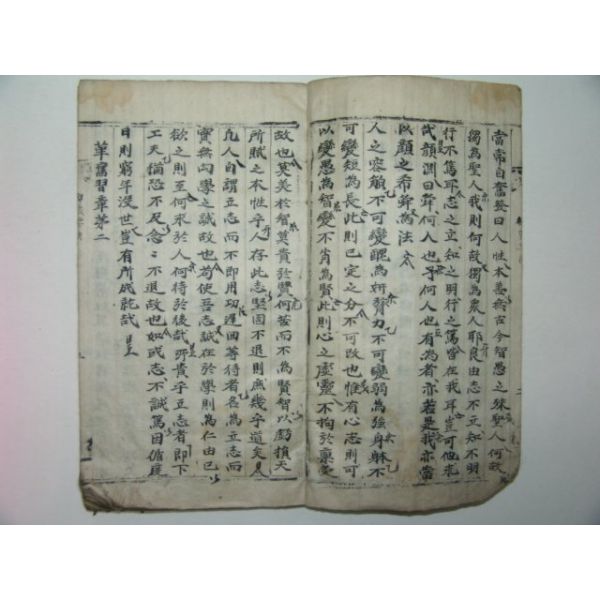 當常自奮發曰人性本善无古今智愚之殊聖人何故
獨為聖人我則何故獨為衆人耶良由志不立知不明
行不篤耳志之立知之明行之篤皆在我耳豈可他求
哉顔淵曰舜何人也予何人也有為者亦若是我亦當
以顔之希舜為法
人之容貌不可變醜為姸膂力不可變弱為強身躰不
可變短為長此則已定之分不可改也惟有心志則可
以變愚為智變不肖為賢此則心之虛靈不拘於稟受
故也莫美於智莫貴於賢何苦而不為賢智以虧損天
所賦之本性乎人存此志堅固不退則庶幾乎道矣
凡人自謂立志而不即用功遲回等待者名為立志而
實無向學之誠故也苟使吾志誠在於學則為仁由己
欲之則至何求於人何待於後哉所貴乎立志者即下
工夫猶恐不及念々不退故也如或志不誠篤因循度
日則窮年沒世豈有所成就哉
革舊習章第二